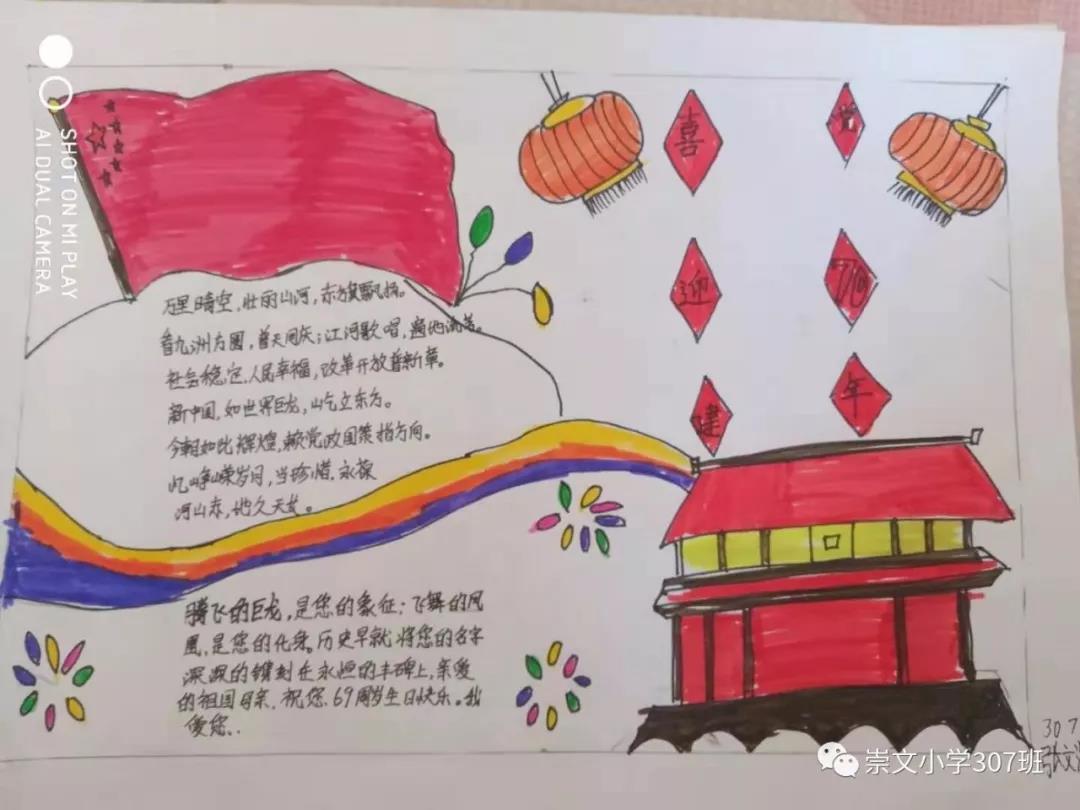 SHOT ON MI PLAY
AI DUAL CAMERA
喜
迎
建
党
70
年
万里晴空，壮丽山河，东旗飘扬。
普九洲方圆，普天同庆；江河歌唱，遍地流芳。
社会稳定，人民幸福，改革开放普新章。
新中国，如世界巨龙，屹立东方。
今朝如此辉煌，赖党政国策指方向。
忆峥嵘岁月，当珍惜，永葆
河山赤，地久天长。
腾飞的巨龙，是您的象征；飞舞的凤
凰，是您的化身。历史早就将您的名字
深深的镌刻在永恒的丰碑上，亲爱
的祖国母亲，祝您69周岁生日快乐。我
爱您..
307
张文
崇文小学307班